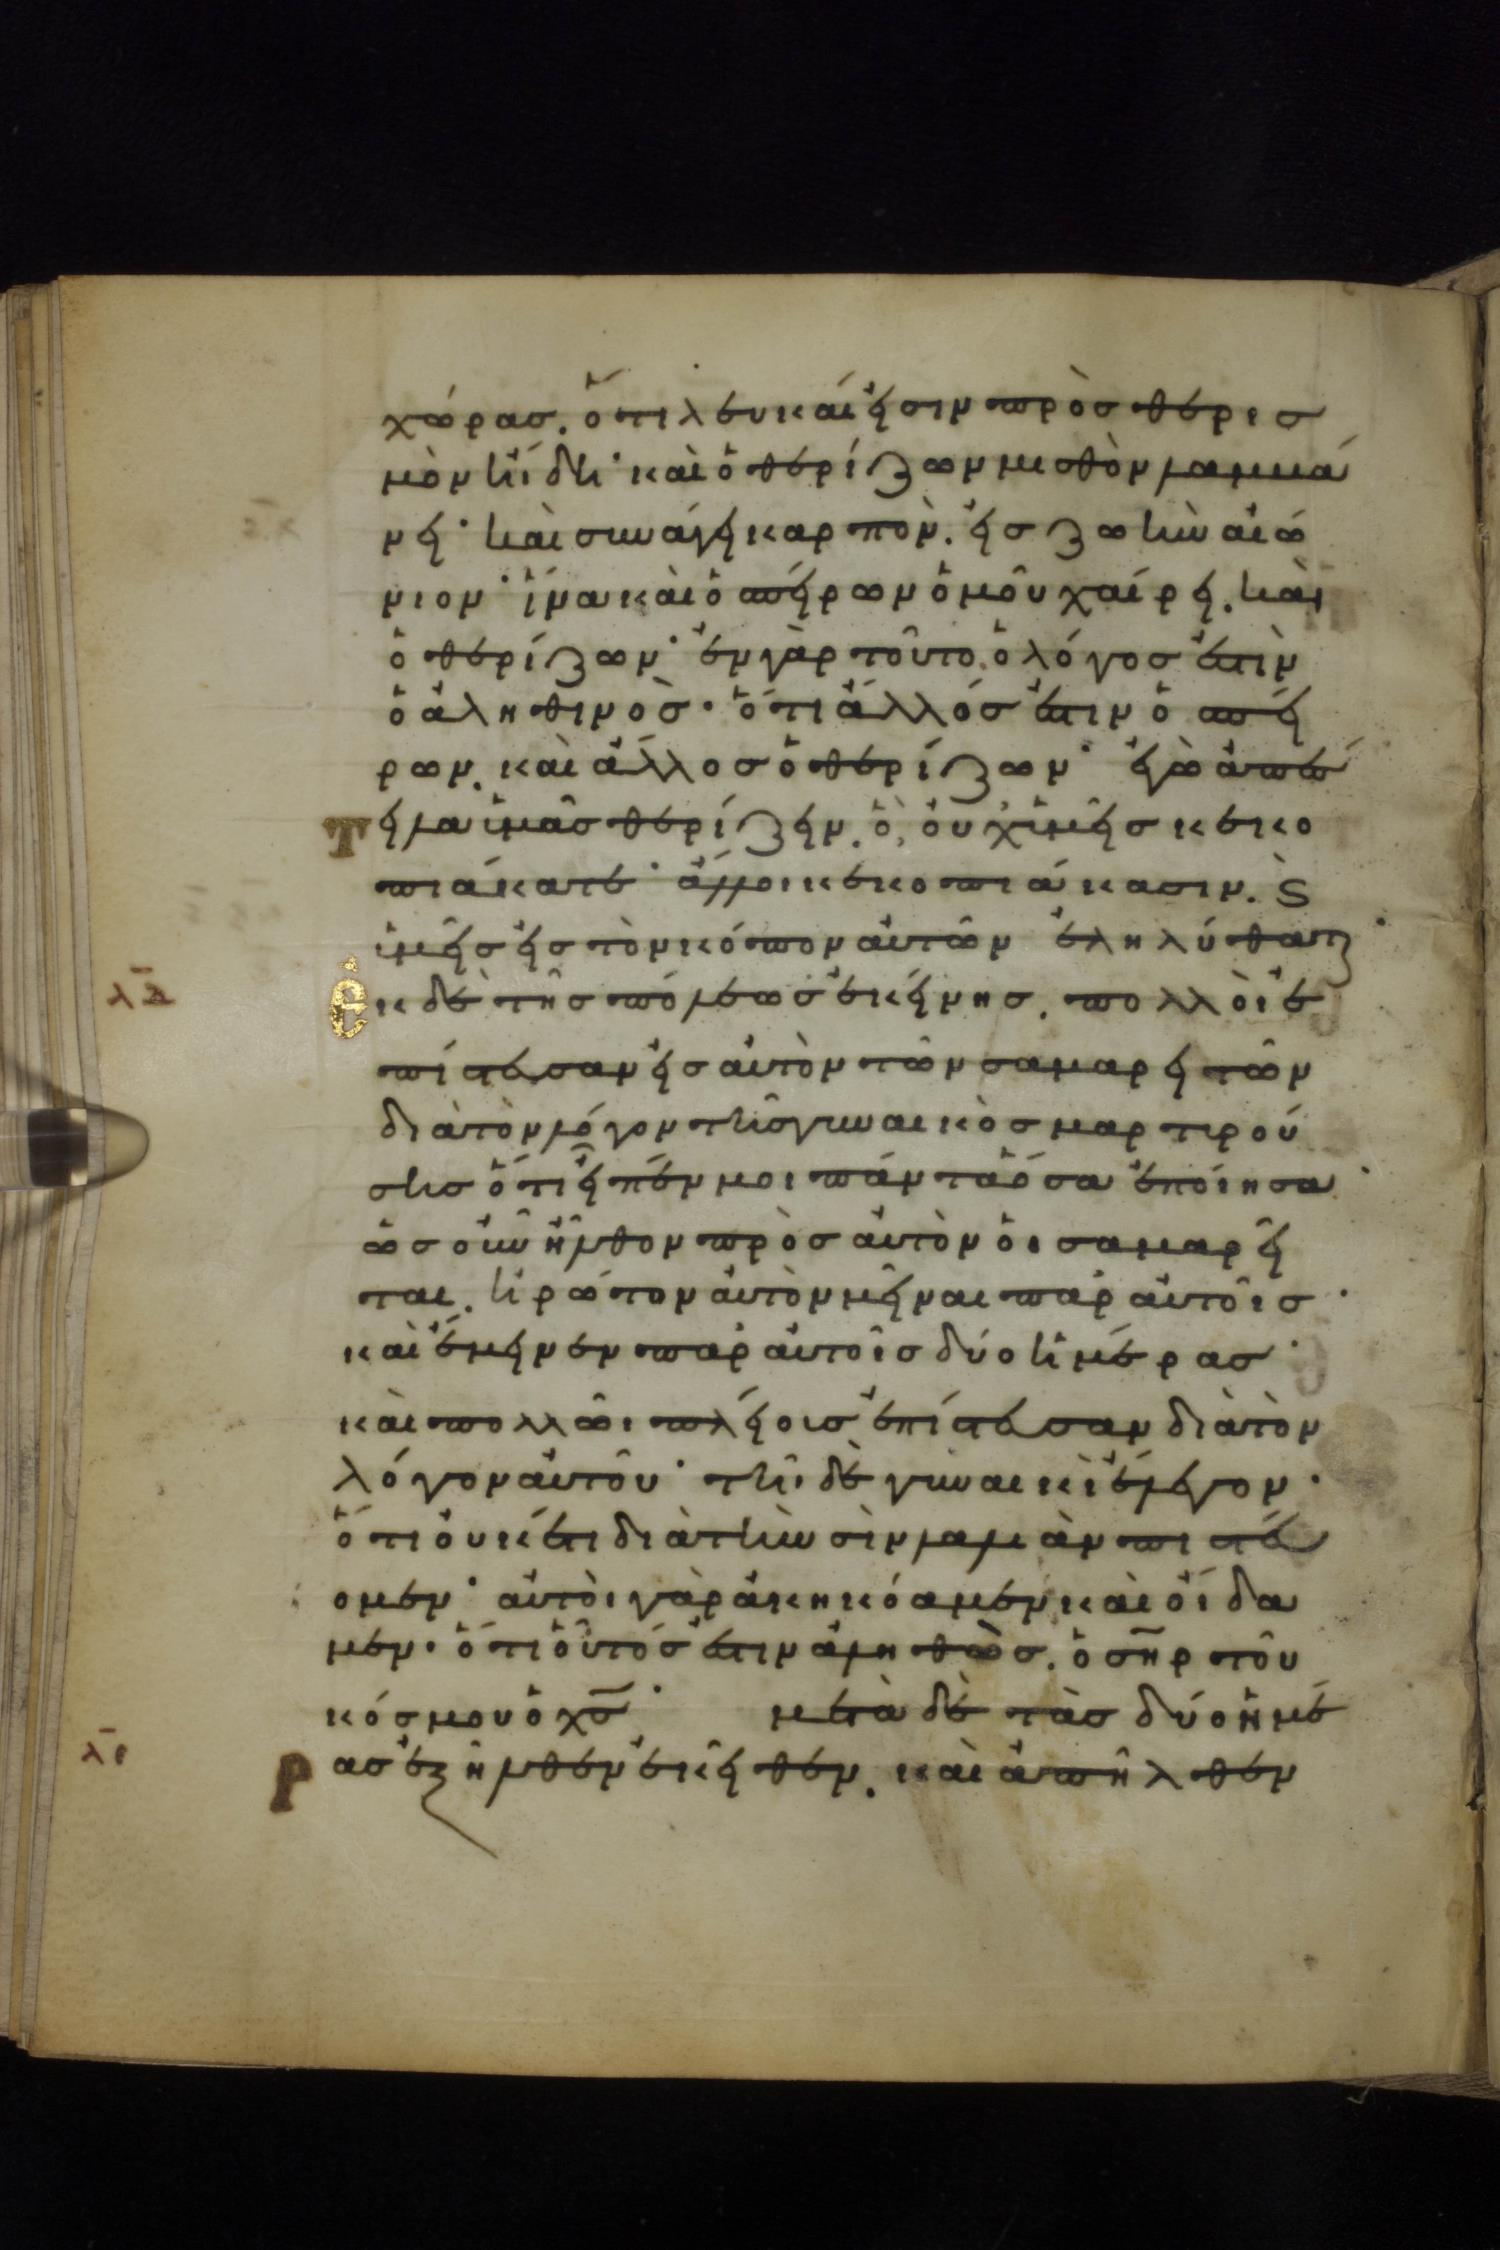 χώρας. ὅτι λευκαί εἰσιν πρὸς θερισ
μὸν ἤδη· καὶ ὁ θερίζων μισθὸν λαμβά
νει· καὶ συνάγει καρπὸν. εἰς ζωὴν αἰώ
νιον· ἵνα καὶ ὁ σπείρων ὁμοῦ χαίρει. καὶ
ὁ θερίζων· ἐν γὰρ τοῦτο. ὁ λόγος ἐστὶν
ὁ ἀληθινὸς· ὅτι ἄλλός ἐστιν ὁ σπεί
ρων. καὶ ἄλλος ὁ θερίζων· ἐγὼ ἀπέσ
τ
ειλα ἱμᾶς θερίζειν. ὃ, οὐχ ἱμεῖς κεκο
πιάκατε· ἄλλοι κεκοπιάκασιν. ϗ
ἱμεῖς εἰς τὸν κόπον αὐτῶν ἐληλύθατε·
λδ
Ἐκ δὲ τῆς πόλεως ἐκείνης. πολλοὶ ἐ
πίστευσαν εἰς αὐτὸν τῶν σαμαρειτῶν
διὰ τὸν λόγον τῆς γυναικὸς μαρτιρού
σης ὅτι εἶπέν μοι πάντα ὅσα ἐποίησα·
ὡς οὖν ἦλθον πρὸς αὐτὸν οἱ σαμαρεῖ
ται. ἠρώτον αὐτὸν μεῖναι παρ αὐτοῖς·
καὶ ἔμεινεν παρ αὐτοῖς δύο ἡμέρας·
καὶ πολλῶι πλείοις ἐπίστευσαν διὰ τὸν
λόγον αὐτοῦ· τῆι δὲ γυναικὶ ἔλεγον·
ὅτι οὐκέτι διὰ τὴν σὴν λαλιὰν πιστεύ
ομεν· αὐτοὶ γὰρ ἀκηκόαμεν καὶ οἴδα
μεν· ὅτι οὗτός ἐστιν ἀληθῶς. ὁ σηρ τοῦ
κόσμου ὁ χς· μετὰ δὲ τὰς δύο ἡμέ
λε
ρ
ας ἐξῆλθεν ἐκεῖθεν. καὶ ἀπῆλθεν